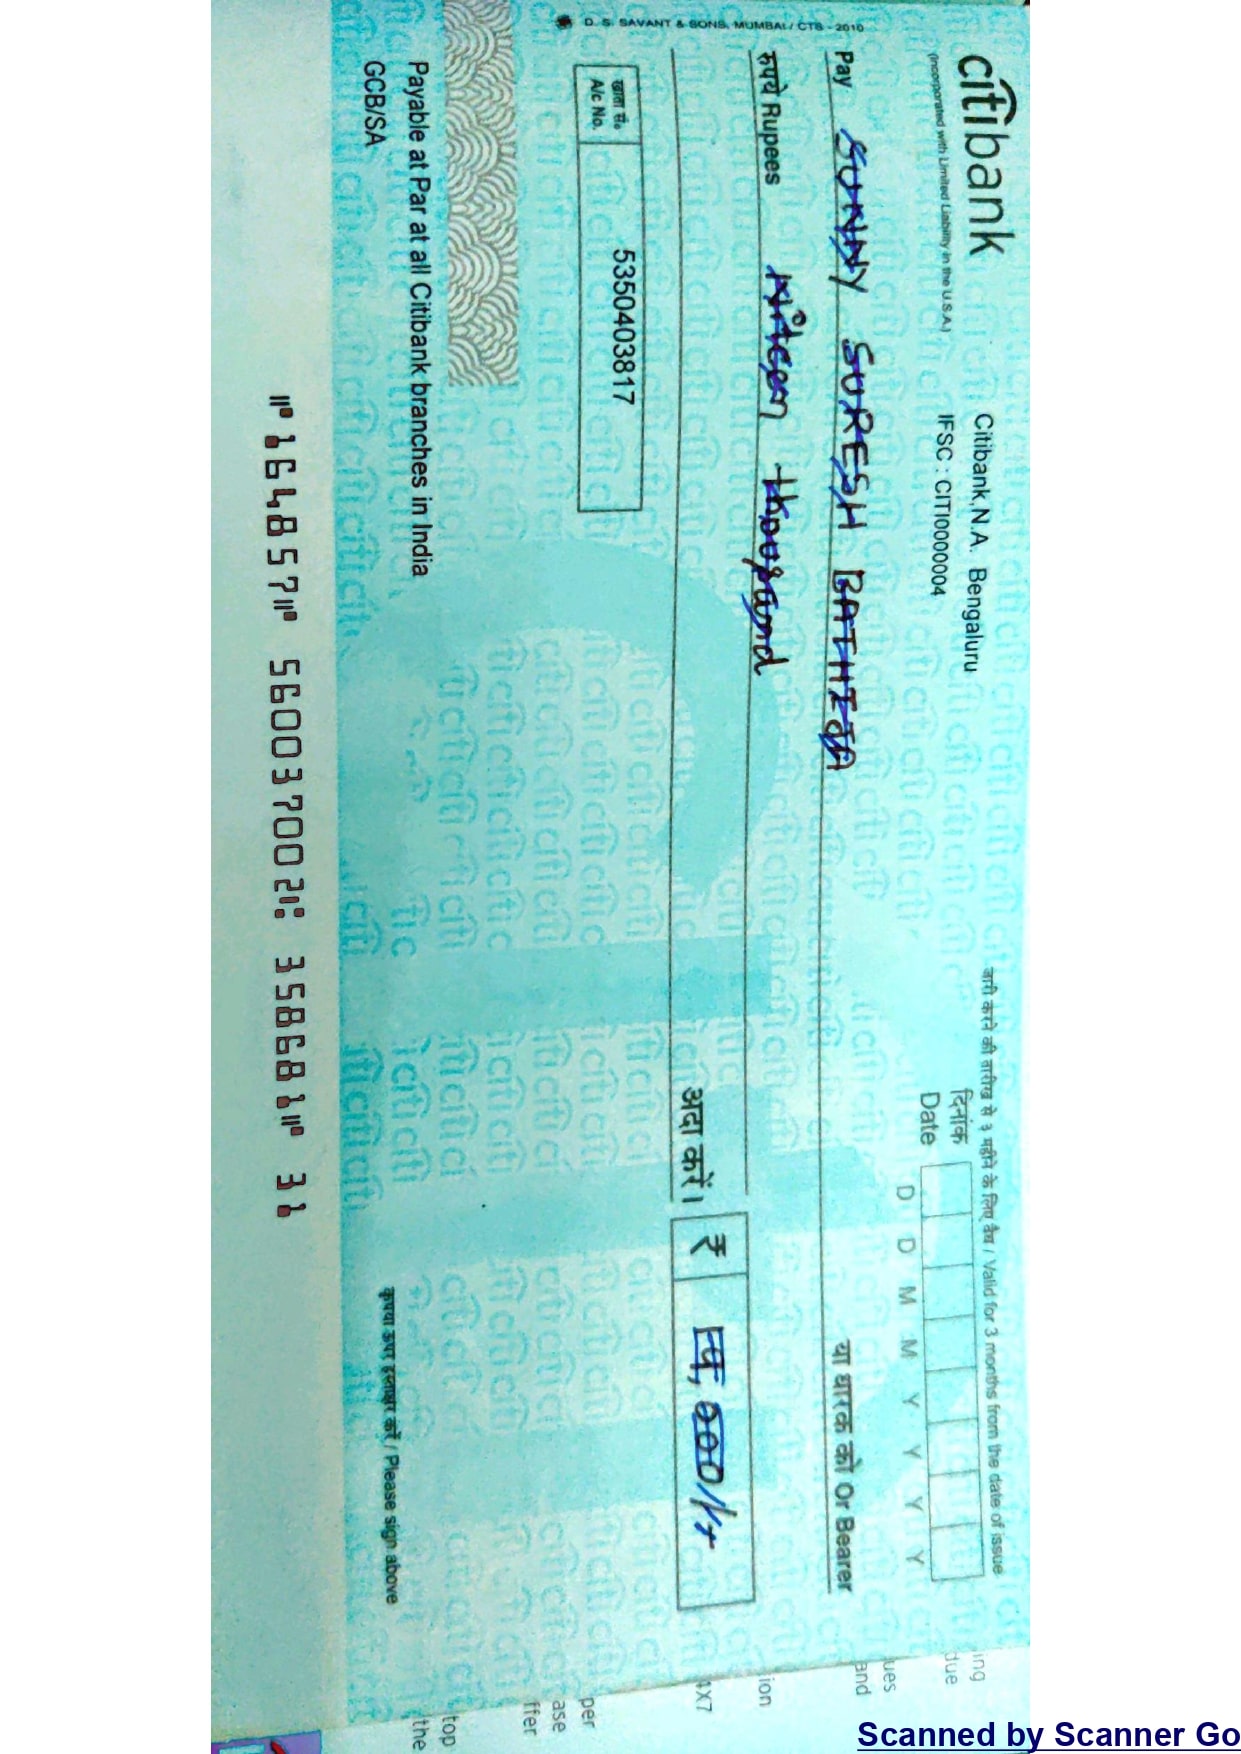 citibank
(Incorporated with Limited Liability in the U.S.A.)
Citibank,N.A. Bengaluru
IFSC : CITI0000004
जारी करने की तारीख से ३ महीने के लिए वैध / Valid for 3 months from the date of issue
दिनांक
Date
D D M M Y Y Y Y
Pay SUNNY SURESH BATHIJA या धारक को Or Bearer
रुपये Rupees thousand
अदा करें।
₹ ,000/-
खाता सं०
A/c No. 5350403817
D. S. SAVANT & SONS, MUMBAI / CTS - 2010
Payable at Par at all Citibank branches in India
GCB/SA
कृपया ऊपर हस्ताक्षर करें / Please sign above
⑈164857⑈ 560037002⑆ 358681⑈ 31
ing
due
ues
and
ion
4X7
per
ase
ffer
top
the
Scanned by Scanner Go